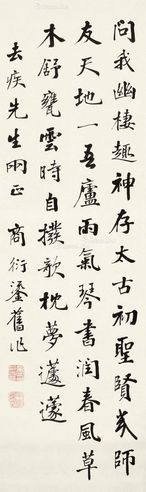 問我幽棲趣神存太古初聖賢多師
友天地一吾廬雨氣琴書潤春風草
木舒甕雲時自撥欹枕夢蘧蘧
去疾先生雨正　商衍鎏舊作